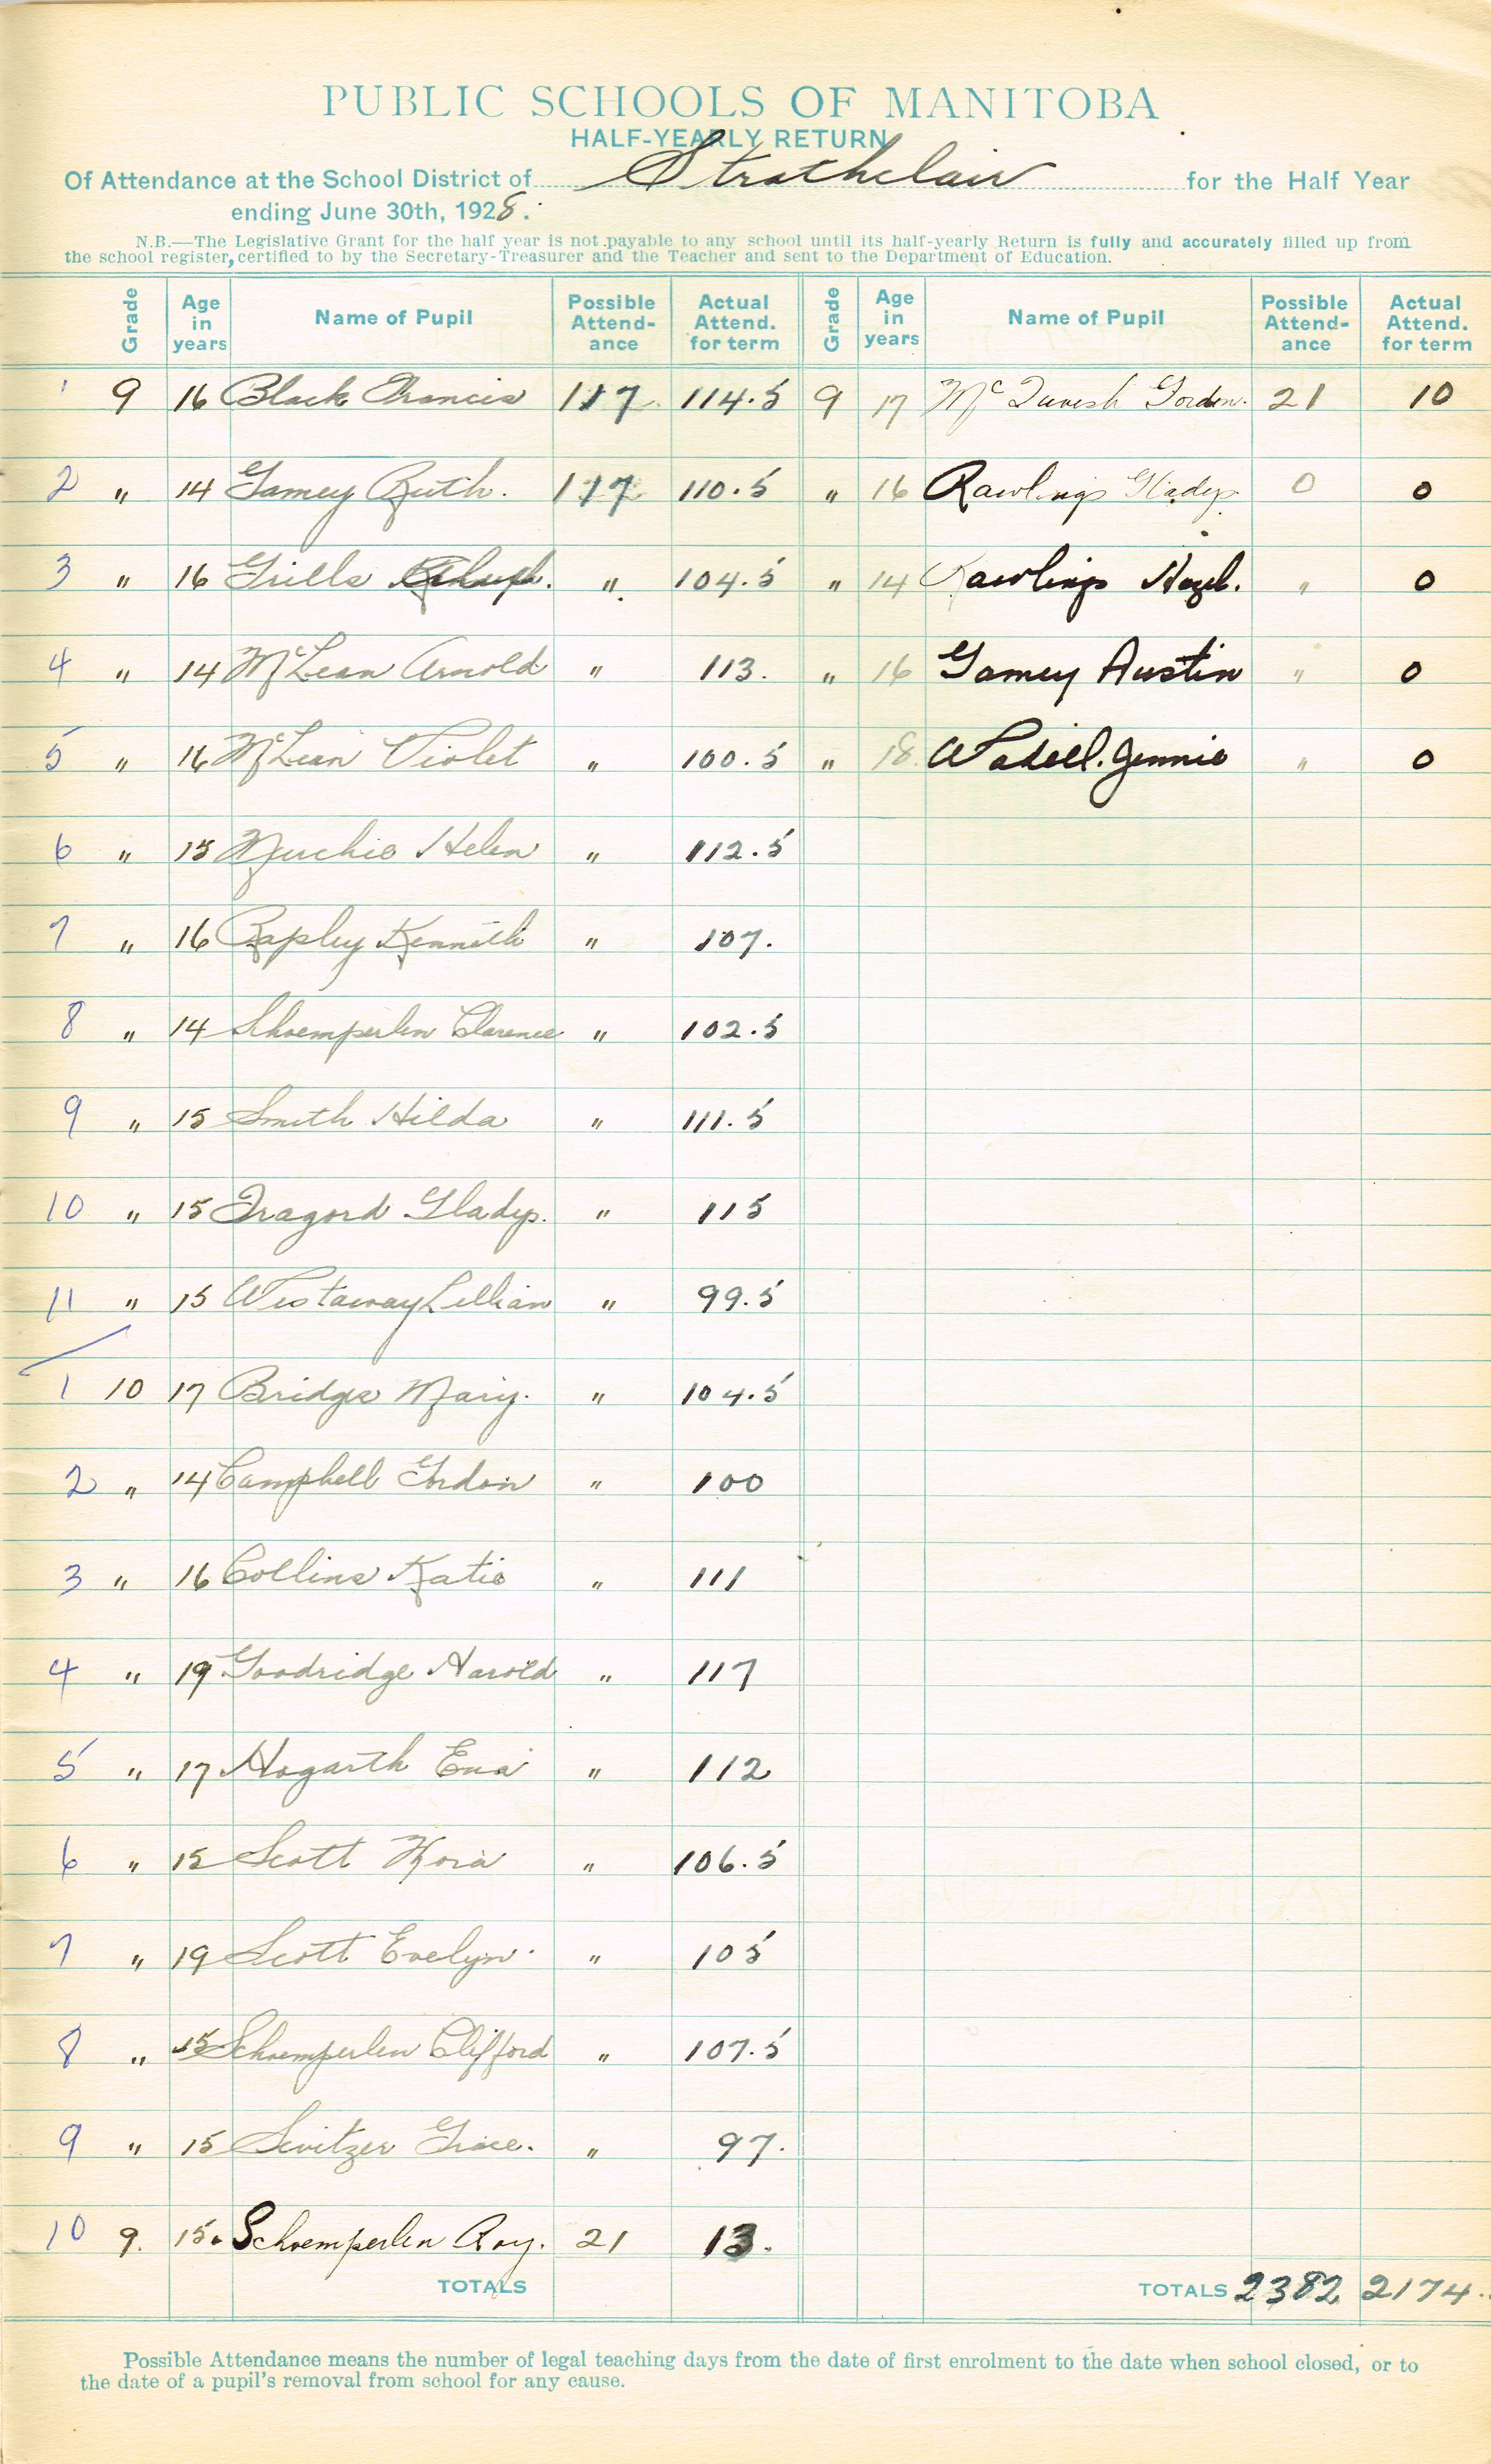 PUBLIC SCHOOLS OF MANITOBA
HALF-YEARLY RETURN
Of Attendance at the School District of Strathclair for the Half Year
ending June 30th, 1928.
N.B.—The Legislative Grant for the half year is not payable to any school until its half-yearly Return is fully and accurately filled up from
the school register, certified to by the Secretary-Treasurer and the Teacher and sent to the Department of Education.
Grade Age in years Name of Pupil Possible Attend-ance Actual Attend. for term Grade Age in years Name of Pupil Possible Attend-ance Actual Attend. for term
1 9 16 Black Francis 117 114.5 9 17 McTavish Gordon. 21 10
2 " 14 Gamey Ruth. 117 110.5 " 16 Rawlings Gladys 0 0
3 " 16 Grills " 104.5 " 14 Rawlings Hazel. " 0
4 " 14 McLean Arnold " 113. " 16 Gamey Austin " 0
5 " 16 McLean Violet " 100.5 " 18 Wadell. Jennie " 0
6 " 15 Murchie Helen " 112.5
7 " 16 Rapley Kenneth " 107.
8 " 14 Shoemperlen Clarence " 102.5
9 " 15 Smith Hilda " 111.5
10 " 15 Tragord Gladys. " 115
11 " 15 Westaway Lillian " 99.5
1 10 17 Bridge Mary. " 104.5
2 " 14 Campbell Gordon " 100
3 " 16 Collins Katie " 111
4 " 19 Goodridge Harold " 117
5 " 17 Hogarth Ena " 112
6 " 15 Scott Nora " 106.5
7 " 19 Scott Evelyn. " 105
8 " 15 Schoemperlen Clifford " 107.5
9 " 15 Switzer Grace. " 97.
10 9. 15. Schoemperlen Roy. 21 13.
TOTALS TOTALS 2382 2174.
Possible Attendance means the number of legal teaching days from the date of first enrolment to the date when school closed, or to
the date of a pupil's removal from school for any cause.